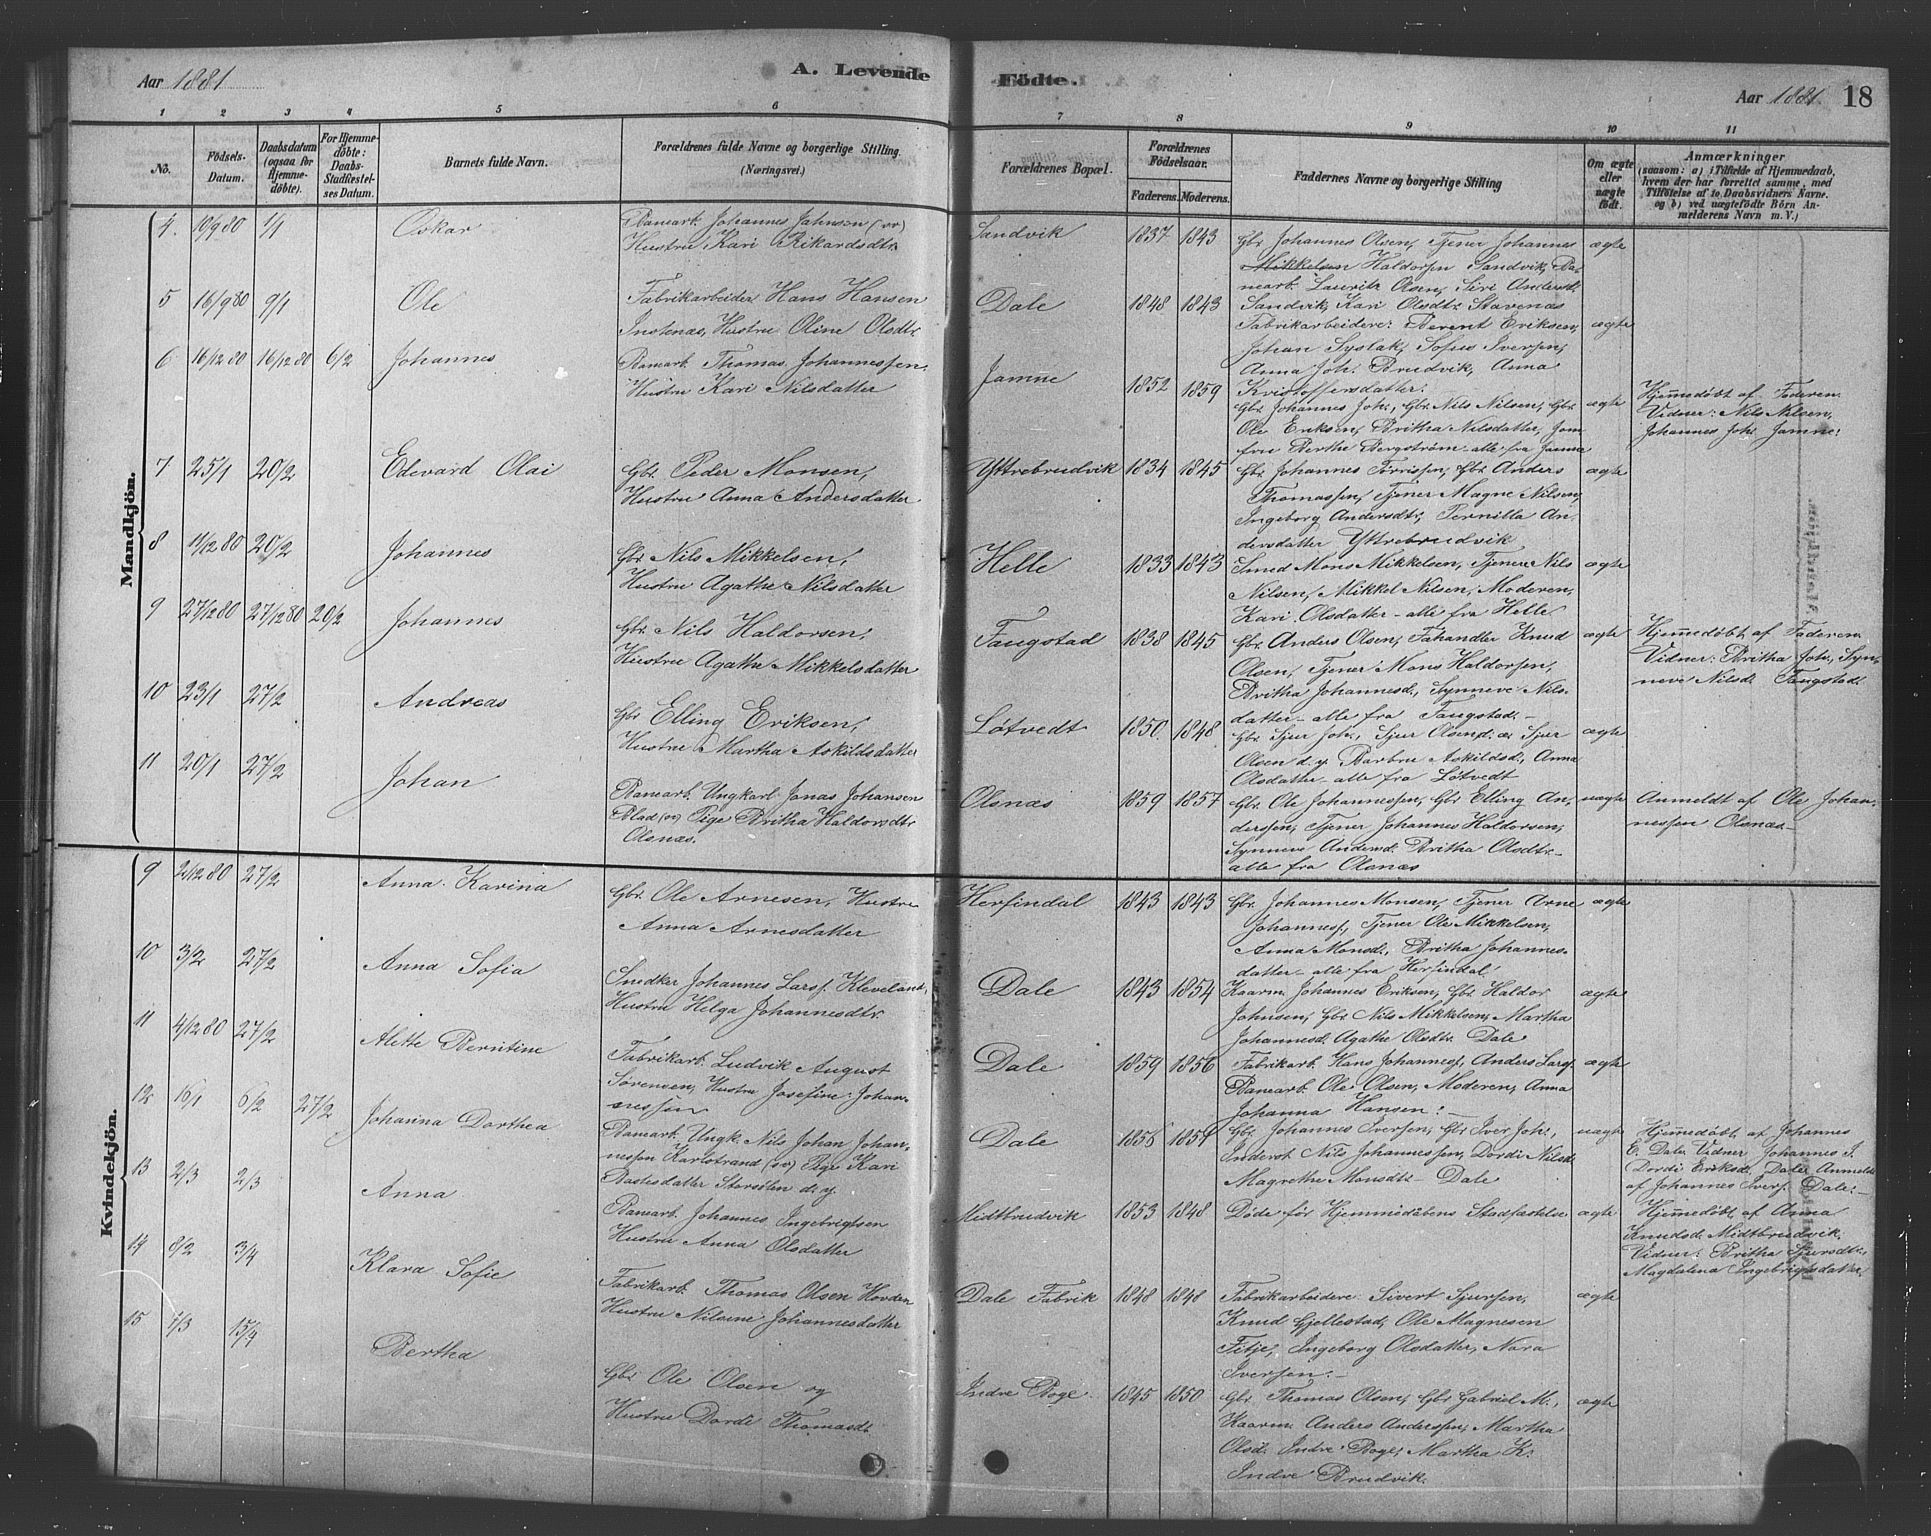 Aar 1881
A. Levende
1 2 3 4 5 6
No.
Födsels-Datum.
Daabsdatum (ogsaa for Hjemmedøbte).
For Hjemmedöbte: Daabs-Stadfæstelses Datum.
Barnets fulde Navn.
Forældrenes fulde Navne og borgerlige Stilling (Næringsvei.)
Mandkjön.
4. 10/9 80 1/1 Oskar
Banearb. Johannes Jahnsen (sv)
Hustru Kari Rikardsdtr
5 16/9 80 9/1 Ole
Fabrikarbeider Hans Hansen
Instenæs, Hustru Oline Olsdtr.
6 16/12 80 16/12 80 6/2 Johannes
Banearb. Thomas Johannessen
Hustru Kari Nilsdatter
7 25/1 20/2 Edevard Olai
Gbr. Peder Monsen,
Hustru Anna Andersdatter
8 11/12 80 20/2 Johannes
Gbr. Nils Mikkelsen,
Hustru Agathe Nilsdatter
9 27/12 80 27/12 80 20/2 Johannes
Gbr. Nils Haldorsen,
Hustru Agathe Mikkelsdatter
10 23/1 27/2 Andreas
Gbr Elling Eriksen,
Hustru Martha Askildsdatter
11 20/1 27/2 Johan
Banearb. Ungkarl Jonas Johansen
Blad (sv) Pige Britha Haldorsdtr
Olsnæs.
Kvindekjön.
9 2/12 80 27/2 Anna Karina
Gbr. Ole Arnesen, Hustru
Anna Arnesdatter
10 3/2 27/2 Anna Sofia
Snedker Johannes Larss. Kleveland,
Hustru Helga Johannesdtr.
11 4/12 80 27/2 Alette Berntine
Fabrikarb. Ludvik August
Sørensen, Hustru Josefine Johan-
nessen
12 16/1 6/2 27/2 Johanna Dorthea
Banearb. Ungk. Nils Johan Johan-
nessen Karlstrand (sv) Pige Kari
Bastesdatter Storsølen d. y.
13 2/3 2/3 Anna
Banearb. Johannes Ingebrigtsen
Hustru Anna Olsdatter
14 8/2 3/4 Klara Sofie
Fabrikarb. Thomas Olsen Hovden
Hustru Nilsine Johannesdatter
15 1/3 15/4 Bertha
Gbr. Ole Olsen og
Hustru Dordi Thomasdt.
Födte.
Aar 1881. 18
7 8 9 10 11
Forældrenes Bopæl.
Forældrenes Födselsaar.
Faderens. Moderens.
Faddernes Navne og borgerlige Stilling
Om ægte eller uægte födt.
Anmærkninger
(saasom: a) i Tilfælde af Hjemmedaab,
hvem der har forrettet samme, med
Tilföielse af to Daabsvidners Navne.
og b) ved uægtefödte Börn An-
melderens Navn m. V.)
Sandvik 1837 1843 Gbr. Johannes Olsen, Tjener Johannes ægte
Mikkelsen Haldorsen Sandvik, Ba-
nearb. Lauritz Olsen, Siri Andersd.
Sandvik, Kari Olsdtr. Stavenæs
Dale 1848 1843
Fabrikarbeidere: Berent Eriksen, ægte
Johan Syslak, Sofus Iversen,
Anna Joh. Brudvik, Anna
Kristoffersdatter.
Jamne 1852 1859
Gbr. Johannes Joh., Gbr. Nils Nilsen, Gbr. ægte
Ole Eriksen, Britha Nilsdatter, Jom-
fru Berthe Bergstrøm - alle fra Jamne
Hjemmedøbt af Faderen.
Vidner: Nils Nilsen,
Johannes Joh. Jamne.
Yttrebrudvik 1834 1845 Gbr. Johannes Torrissen, Gbr. Anders ægte
Thomassen, Tjener Magne Nilsen,
Ingeborg Andersdtr, Pernilla An-
dersdatter Yttrebrudvik
Helle 1833 1843 Smed Mons Mikkelsen, Tjener Nils ægte
Nilsen, Mikkel Nilsen, Moderen,
Kari Olsdatter - alle fra Helle.
Fangstad 1838 1845 Gbr. Anders Olsen, Fæhandler Knud ægte
Olsen, Tjener Mons Haldorsen,
Britha Johannesd., Synneve Nils-
datter - alle fra Fangstad. -
Hjemmedøbt af Faderen
Vidner: Britha Joh., Syn-
neve Nilsd. Fangstad.
Løtvedt 1850 1848 Gbr. Sjur Joh., Sjur Olsen d. æ. Sjur ægte
Olsen d. y. Barbru Askildsd., Anna
Olsdatter - alle fra Løtvedt
Olsnæs 1859 1857 Gbr. Ole Johannessen, Gbr Elling An- uægte
derssen, Tjener Johannes Haldorsen,
Synneve Andersd. Britha Olsdtr. -
alle fra Olsnæs
Anmeldt af Ole Johan-
nessen Olsnæs -
Herfindal 1843 1843 Gbr. Johannes Monsen, Tjener Arne ægte
Johanness, Tjener Ole Mikkelsen,
Anna Monsd., Britha Johannes-
datter - alle fra Herfindal
Dale 1843 1854 Kaarm. Johannes Eriksen, Gbr. Haldor ægte
Johnsen, Gbr. Nils Mikkelsen, Martha
Johannesd. Agathe Olsdtr. Dale
Dale 1859 1856 Fabrikarb. Hans Johanness, Anders Larss. ægte
Banearb. Ole Olsen, Moderen, Anna
Johanna Hansen: -
Dale 1856 Gbr. Johannes Iversen, Gbr Iver Joh., uægte
Inderst Nils Johannessen, Dordi Nilsd.
Magrethe Monsdtr. - Dale
Hjemmedøbt af Johannes
E. Dale. Vidner Johannes I.
Dordi Eriksd. Dale. Anmeldt
af Johannes Ivers. Dale. -
Midtbrudvik 1853 1848 Døde før Hjemmedåbens Stadfæstelse ægte
Hjemmedøbt af Anna
Knudsd. Midtbrudvik.
Vidner: Britha Sjursdtr.
Magdalena Ingebrigtsdatter
Dale Fabrik 1848 1848 Fabrikarbeidere: Sivert Sjursen, ægte
Knud Gjellestad, Ole Magnesen
Fitje, Ingeborg Olsdatter, Nora
Iversen. -
Indre Boge 1845 1850 Gbr. Thomas Olsen, Gbr Gabriel M., ægte
Kaarm. Anders Anderssen, Martha
Olsd. Indre Boge, Martha K.
Indre Brudvik.